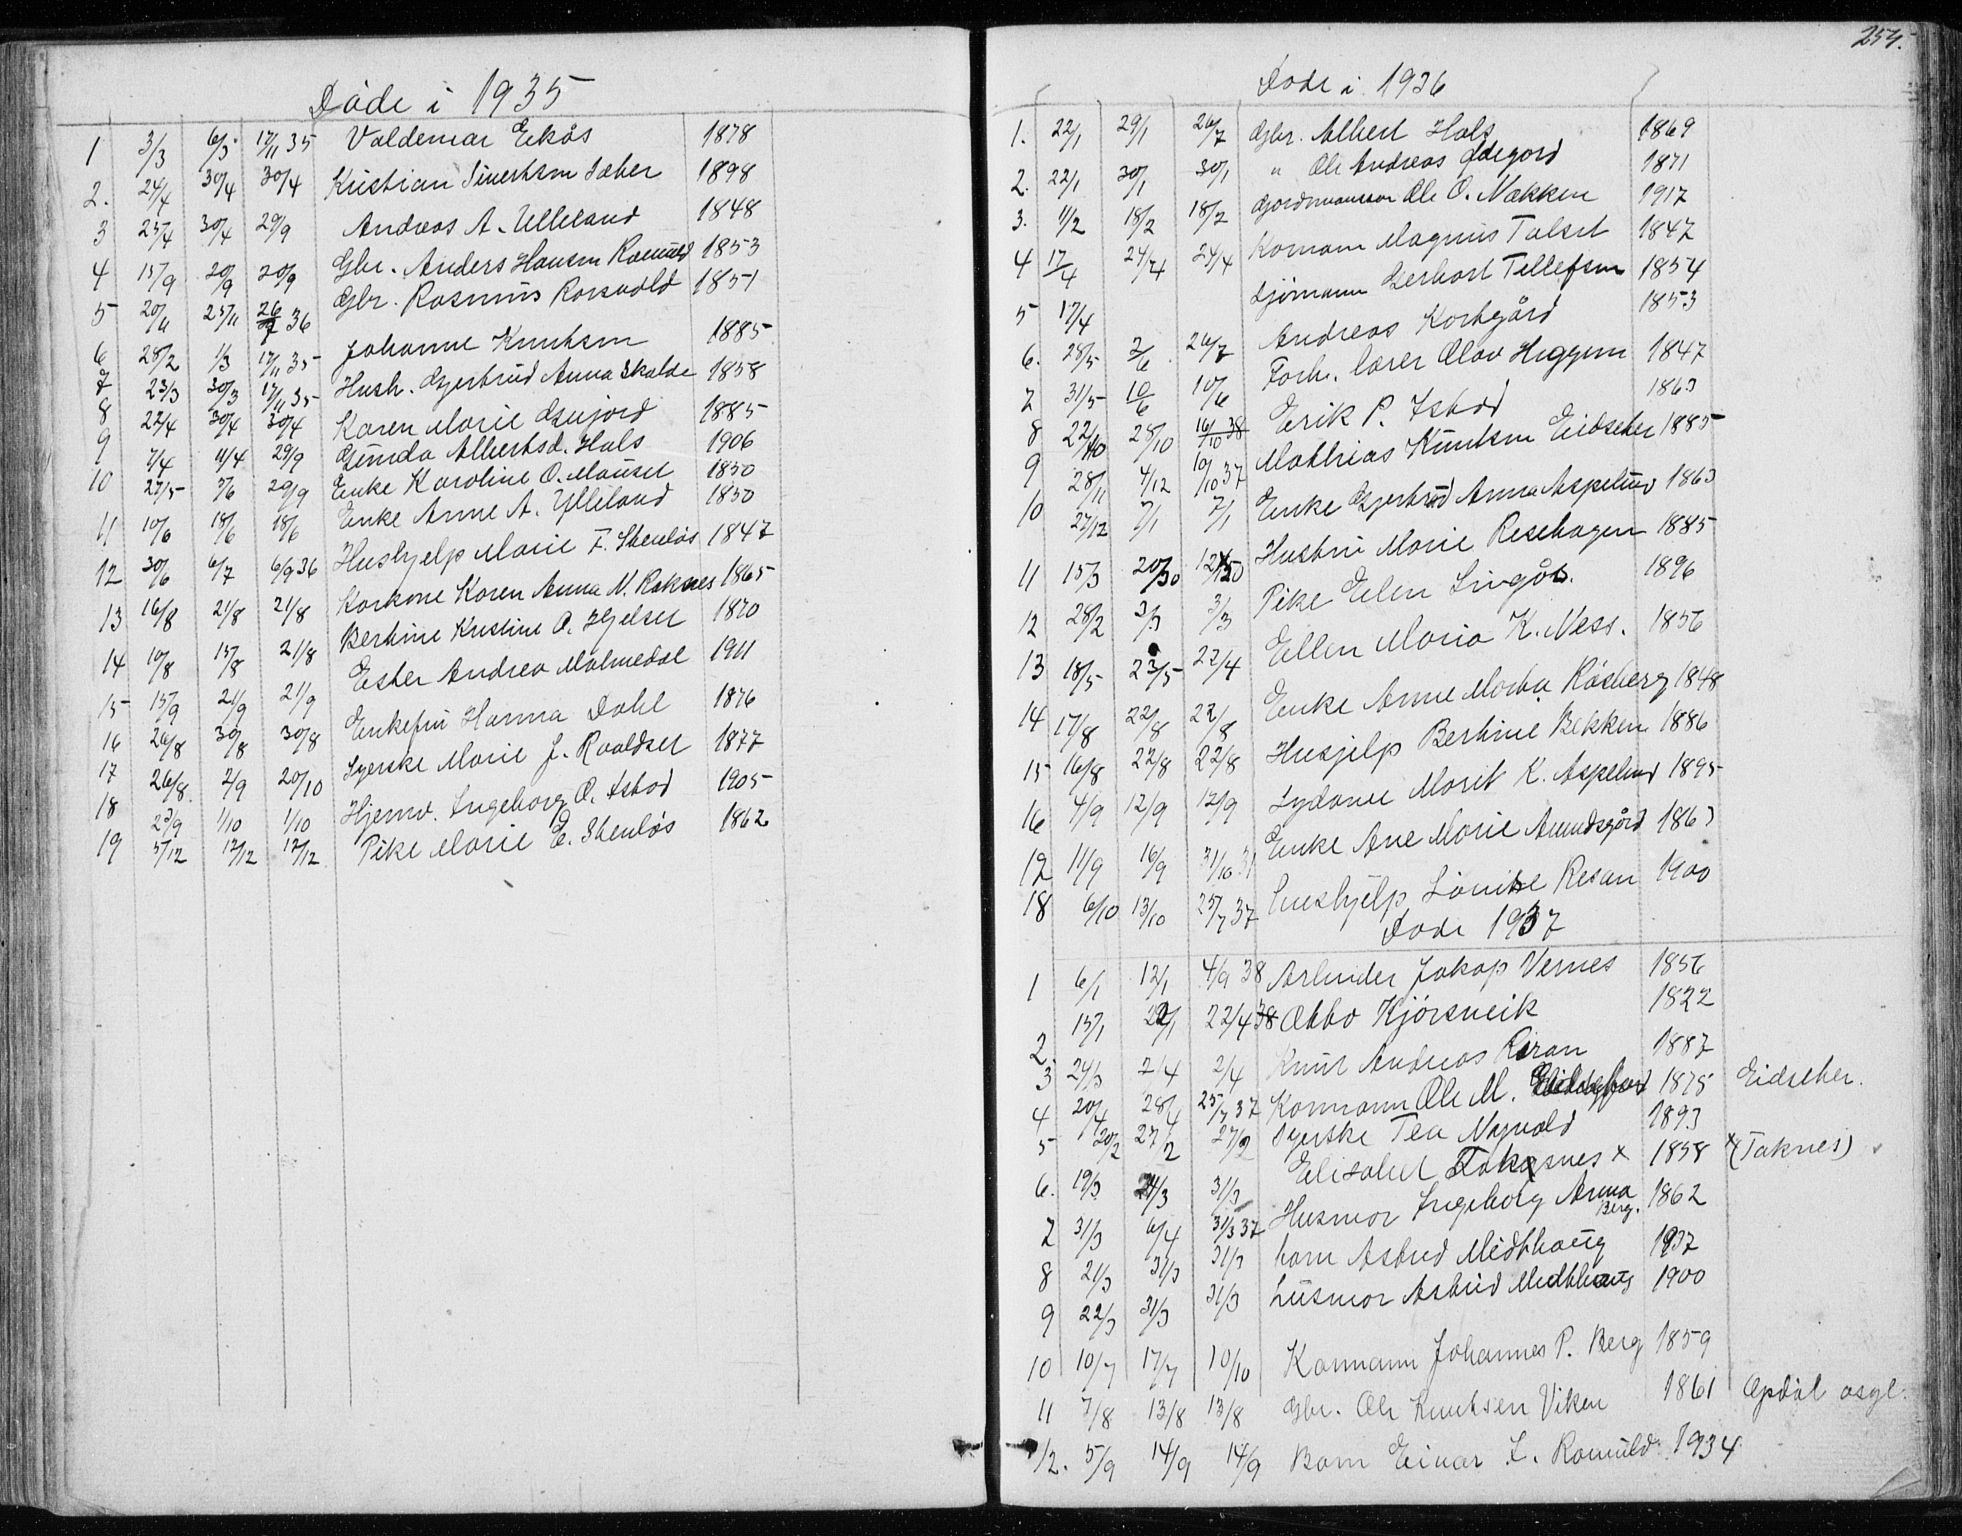 Døde i 1935
1 3/3 6/3 17/11 35 Valdemar Eikås 1878
2. 24/4 30/4 30/4 Kristian Sivertsen Sæter 1898
3 25/4 30/4 29/9 Andreas A. Ulleland 1848
4 15/9 20/9 20/9 Gbr. Anders Hansen Romuld 1853
5 20/11 25/11 26/7 36 Gbr. Rasmus Korsvold 1851
6 28/2 1/3 17/11 35 Johanne Knutsen 1885
7 23/3 30/3 17/11 35 Hush. Gjertrud Anna Skalde 1858
8 22/4 30/4 30/4 Karen Marie Gujord 1885
9 7/4 11/4 29/9 Gunda Albertsd. Hals 1906
10 27/5 7/6 29/9 Enke Karoline O. Mauset 1850
11 10/6 18/6 18/6 Enke Anne A. Ylleland 1850
12 30/6 6/7 6/9 36 Hushjelp Marie F. Stenløs 1847
13 16/8 21/8 21/8 Karkone Karen Anna N. Raknes 1865
14 10/8 15/8 21/8 Berthine Kristine O. Hjelset 1870
15 15/9 21/9 21/9 Ester Andrea Malmedal 1911
16 26/8 30/8 30/8 Enkefru Hanna Dahl 1876
17 26/8 2/9 20/10 Syerske Marie J. Roaldset 1877
18 23/9 1/10 1/10 Hjemv. Ingeborg O. Istad 1905
19 5/12 12/12 12/12 Pike Marie E. Stenløs 1862
254.
Døde i 1936
1. 22/1 29/1 26/7 Gbr. Albert Hals 1869
2. 22/1 30/1 30/1 " Ole Andreas Ødegård 1871
3. 11/2 18/2 18/2 Gårdmannssøn Ole O. Nakken 1917
4 17/4 24/4 24/4 Kårmann Magnus Talset 1847
5 17/4 Sjømann Gerhart Tellefsen 1854
Andreas Kortgård 1853
6. 25/5 2/6 26/7 Forh. lærer Olav Heggem 1847
7 31/5 10/6 10/6 Erik P. Istad 1863
8 22/10 25/10 16/10 38 Mathias Knutsen Eidseter 1885
9 28/11 4/12 10/10 37 Enke Gjertrud Anna Aspelund 1863
10 27/12 7/1 7/1 Hustru Marie Resehagen 1885
11 15/3 20/3 Pike Elen Livgås. 1896
12 28/2 3/3 3/3 Ellen Maria K. Ness. 1856
13 18/5 23/5 22/4 Enke Anne Marta Råsberg 1848
14 17/8 22/8 22/8 Husjelp Berthine Bekken 1886
15 16/8 22/8 22/8 Sydame Marit K. Aspelund 1895
16 4/9 12/9 12/9 Enke Ane Marie Amundsgård 1863
17 11/9 16/9 31/10 37
18 6/10 13/10 25/7 37 Hushjelp Lovise Resan 1900
Døde 1937
1 6/1 12/1 4/9 38 Arbeider Jakop Vernes 1856
2. 15/1 22/1 22/4 38 Otto Kjørsvik 1822
3 24/3 2/4 2/4 Knut Andreas Roran 1887
4 20/4 28/4 25/7 37 Kårmann Ole M. 1875 Eidseter.
5 20/2 27/2 27/2 Syerske Tea Nyvold 1893
6. 19/3 24/3 31/3 Elisabet Taknesnes x 1858 x(Taknes)
7 31/3 6/4 31/3 37 Husmor Ingeborg Anna Berg. 1862
8 21/3 31/3 31/3 barn Astrid Midthaug 1937
9 22/3 31/3 31/3 Husmor Astrid Midthaug 1900
10 10/7 17/7 10/10 Kårmann Johannes P. Berg 1859
11 7/8 13/8 13/8 Gbr. Ole Knutsen Viken 1861 Opdøl asyl.
12. 5/9 14/9 14/9 Barn Einar L. Romuld 1934